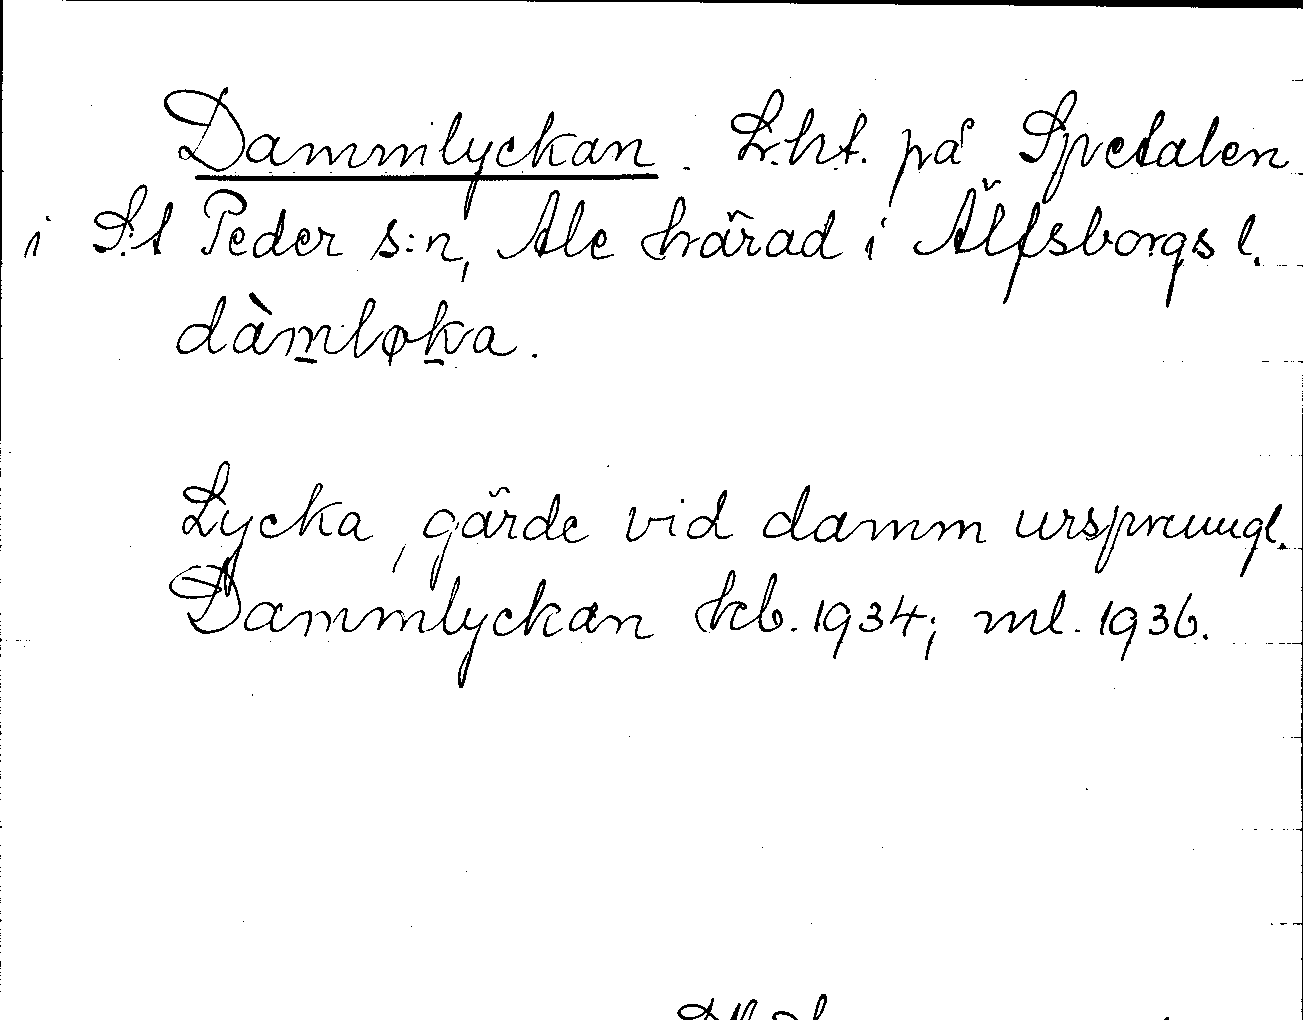 Dammlyckan. L.ht. på Spetalen
i S:t Peder s:n, Ale härad i Älfsborgs l.
dàm̲løk̲a.
Lycka, gärde vid damm ursprungl.
Dammlyckan kb. 1934; ml. 1936.